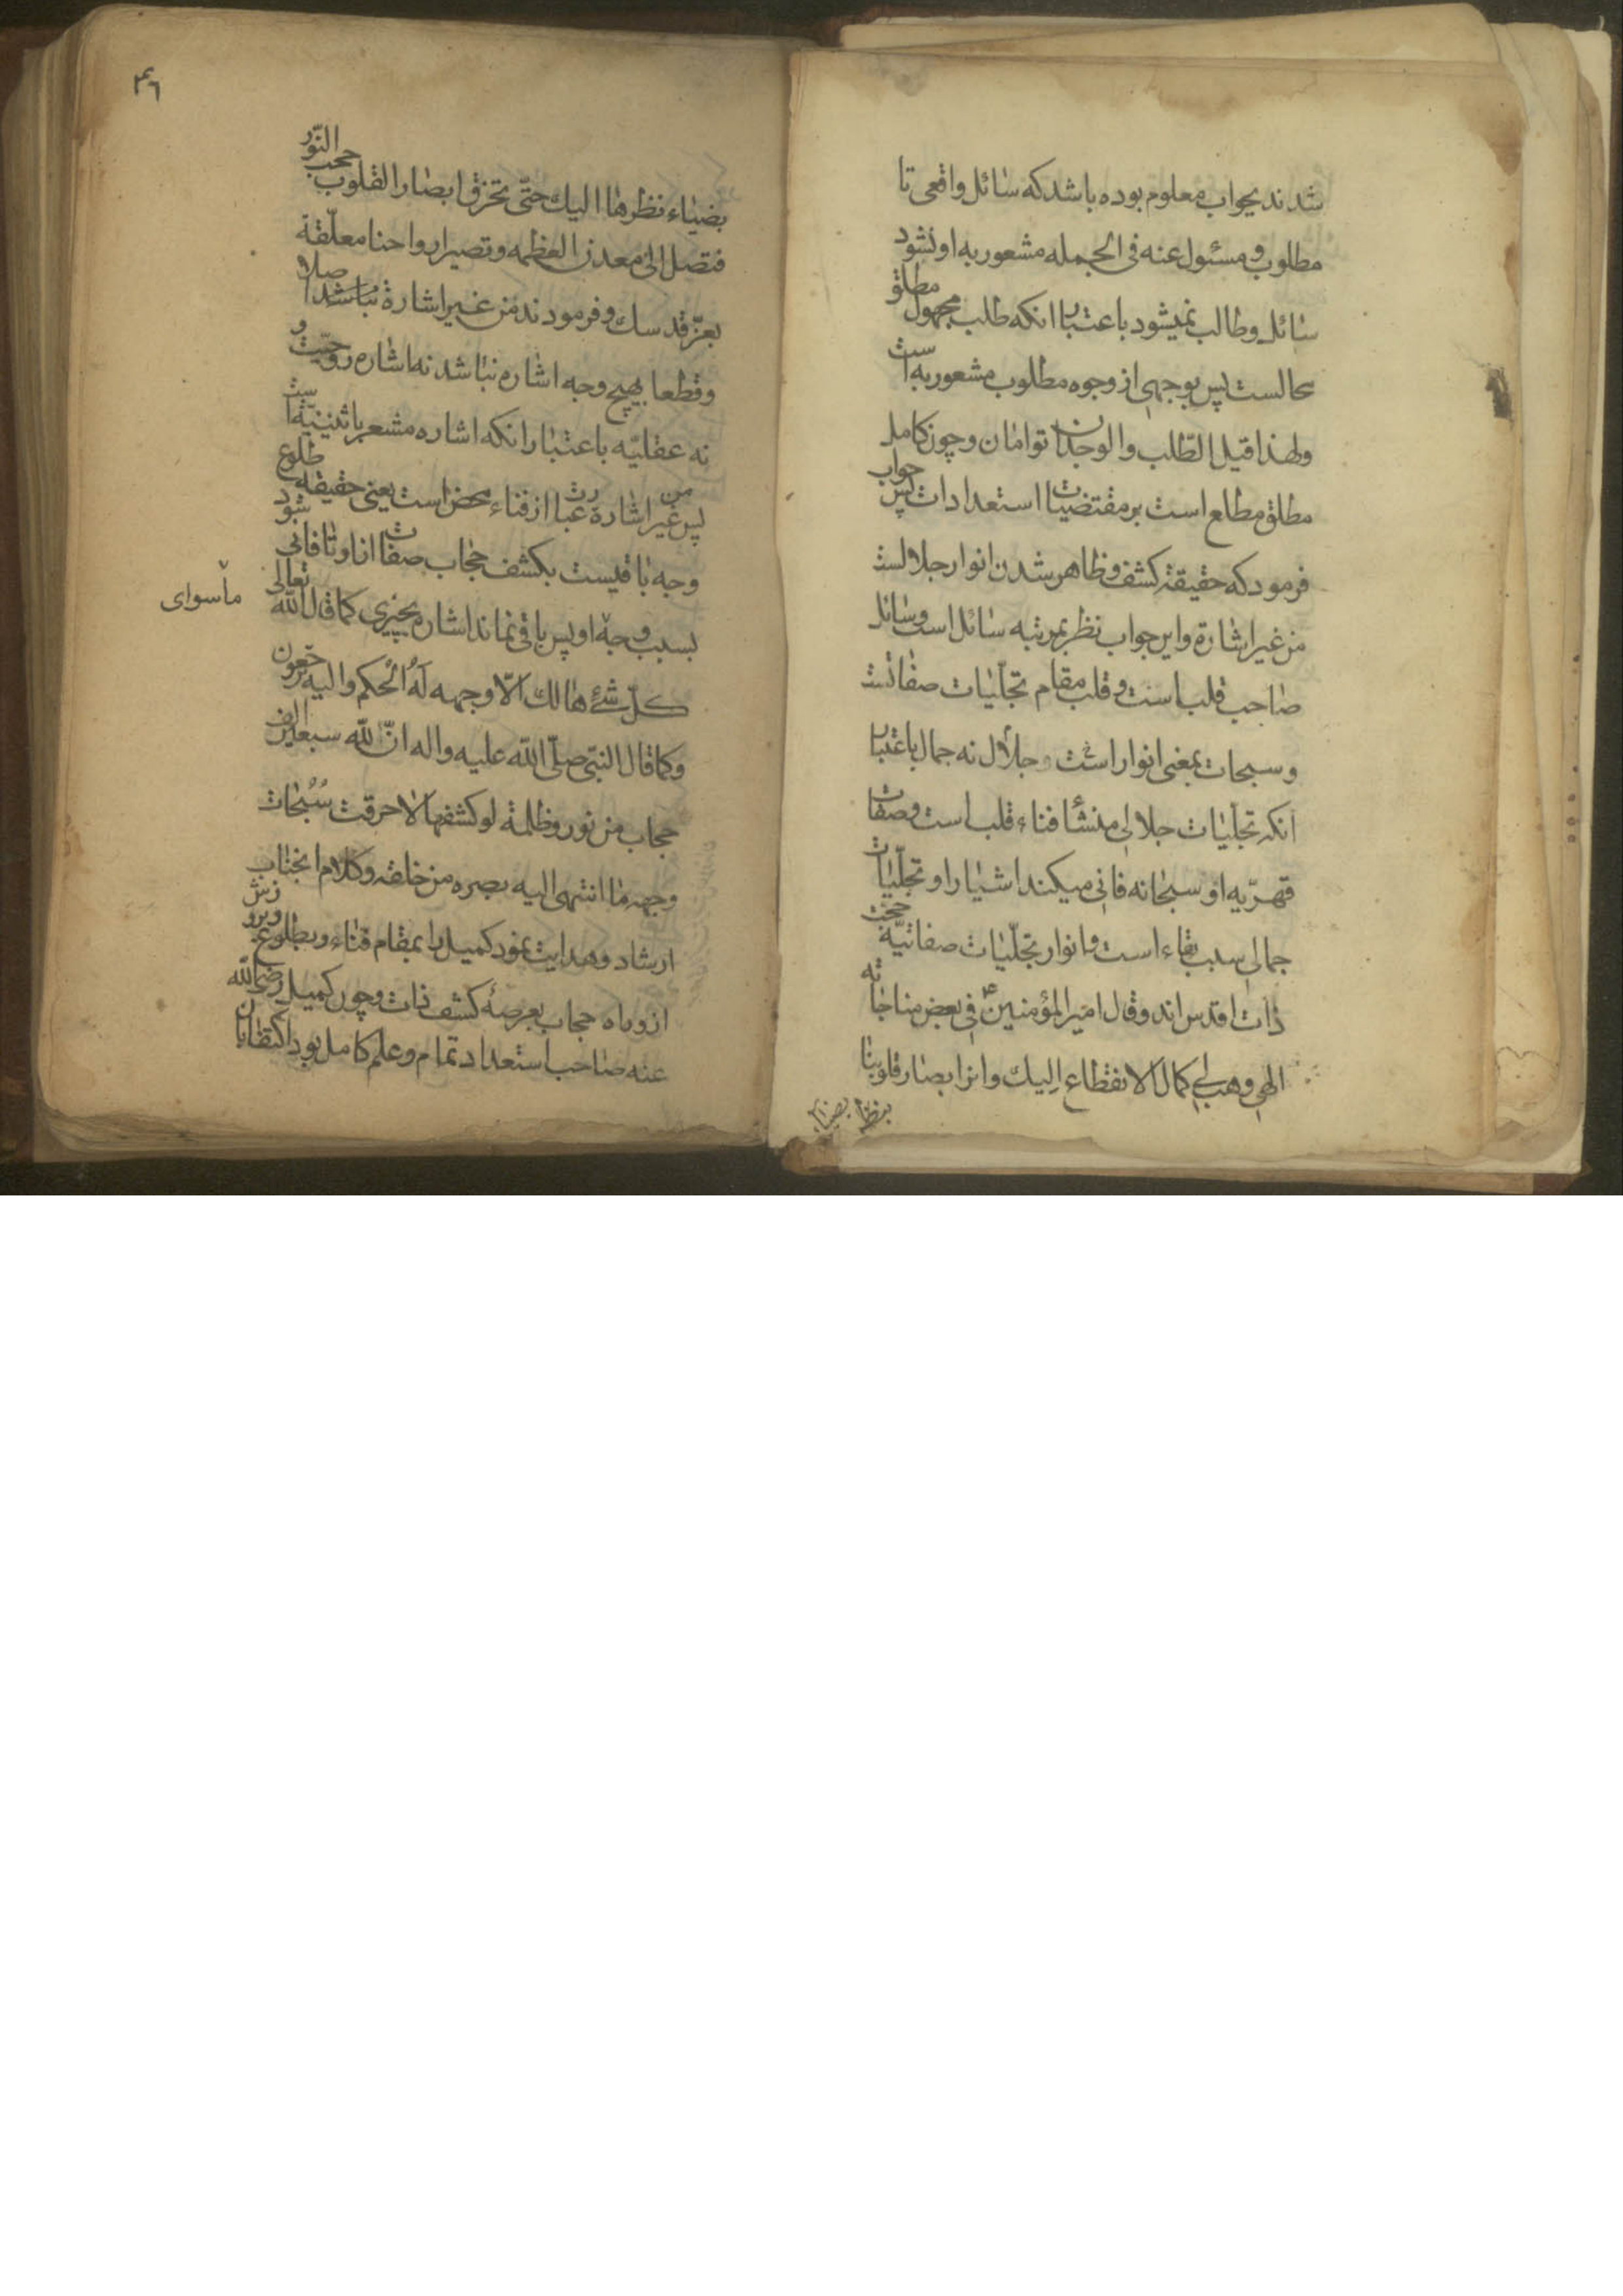 شدند بجواب معلوم بوده باشد که سائل واقعی تا
مطلوب و مسئول عنه فی الجمله مشعور به او نشود
سائل و طالب نمیشود باعتبار انکه طلب مجهول مطلق
محالست پس بوجهی از وجوه مطلوب مشعور به است
ولهذا قیل الطّلب والوجدان توامان و چون کامل
مطلق مطلع است بر مقتضیات استعدادات پس جواب
فرمود که حقیقة کشف و ظاهر شدن انوار جلالست
من غیر اشارة و این جواب نظر بمرتبه سائل است و سائل
صاحب قلب است و قلب مقام تجلّیات صفاتست
و سبحات بمعنی انوار است و جلال نه جمال باعتبار
انکه تجلّیات جلالی منشأ فناء قلب است و صفات
قهریّه او سبحانه فانی میکند اشیا را و تجلّیات
جمالی سبب بقاء است و انوار تجلّیات صفاتیّه حجب
ذات اقدس اند و قال امیر المؤمنین ع فی بعض مناجاته
الهی وهب لی کمال الانقطاع الیك وانر ابصار قلوبنا
٣٦
بضیاء نظرها الیك حتّی تخرق ابصار القلوب حجب النّور
فتصل الی معدن العظمه وتصیر ارواحنا معلّقة
بعزّ قدسك و فرمودند من غیر اشارة نباشد اصلا
و قطعا بهیچ وجه اشاره نباشد نه اشاره روحیّت و
نه عقلیّه باعتبار انکه اشاره مشعر باثنینیّة است
پس من غیر اشارة عبارت از فناء محض است یعنی حقیقة طلوع
وجه باقیست بکشف حجاب صفات از او تا فانی شود
ماسوای
بسبب وجه او پس باقی نماند اشاره بچیزی کما قال الله تعالی
کلّ شئ هالك الّا وجهه له الحکم والیه ترجعون
وکما قال النبّی صلّی الله علیه واله انّ لله سبعین الف
حجاب من نور وظلمة لو کشفها لاحرقت سُبُحات
وجهه ما انتهی الیه بصره من خلقه و کلام انجناب
ارشاد و هدایت نمود کمیل را بمقام فناء و بطلوع
از وراه حجاب بعرصهٔ کشف ذات و چون کمیل رضی الله
عنه صاحب استعداد تمام و علم کامل بود